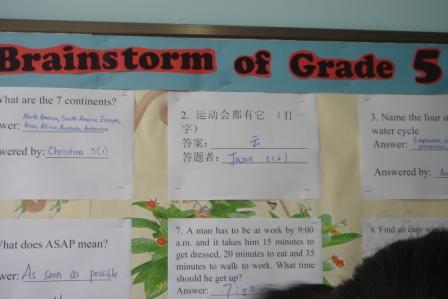 Brainstorm of Grade 5
What are the 7 continents?
North America, South America, Europe,
Asia, Africa, Australia, Antarctica
Christina 5(1)
2. 运动会都有它 （打一
字）
答案： 云
答题者： Jason
3. Name the four st
water cycle
Answer:
Answered by:
What does ASAP mean?
As soon as possible
7. A man has to be at work by 9:00
a.m. and it takes him 15 minutes to
get dressed, 20 minutes to eat and 35
minutes to walk to work. What time
should he get up?
Answer:
8. Find an easy w